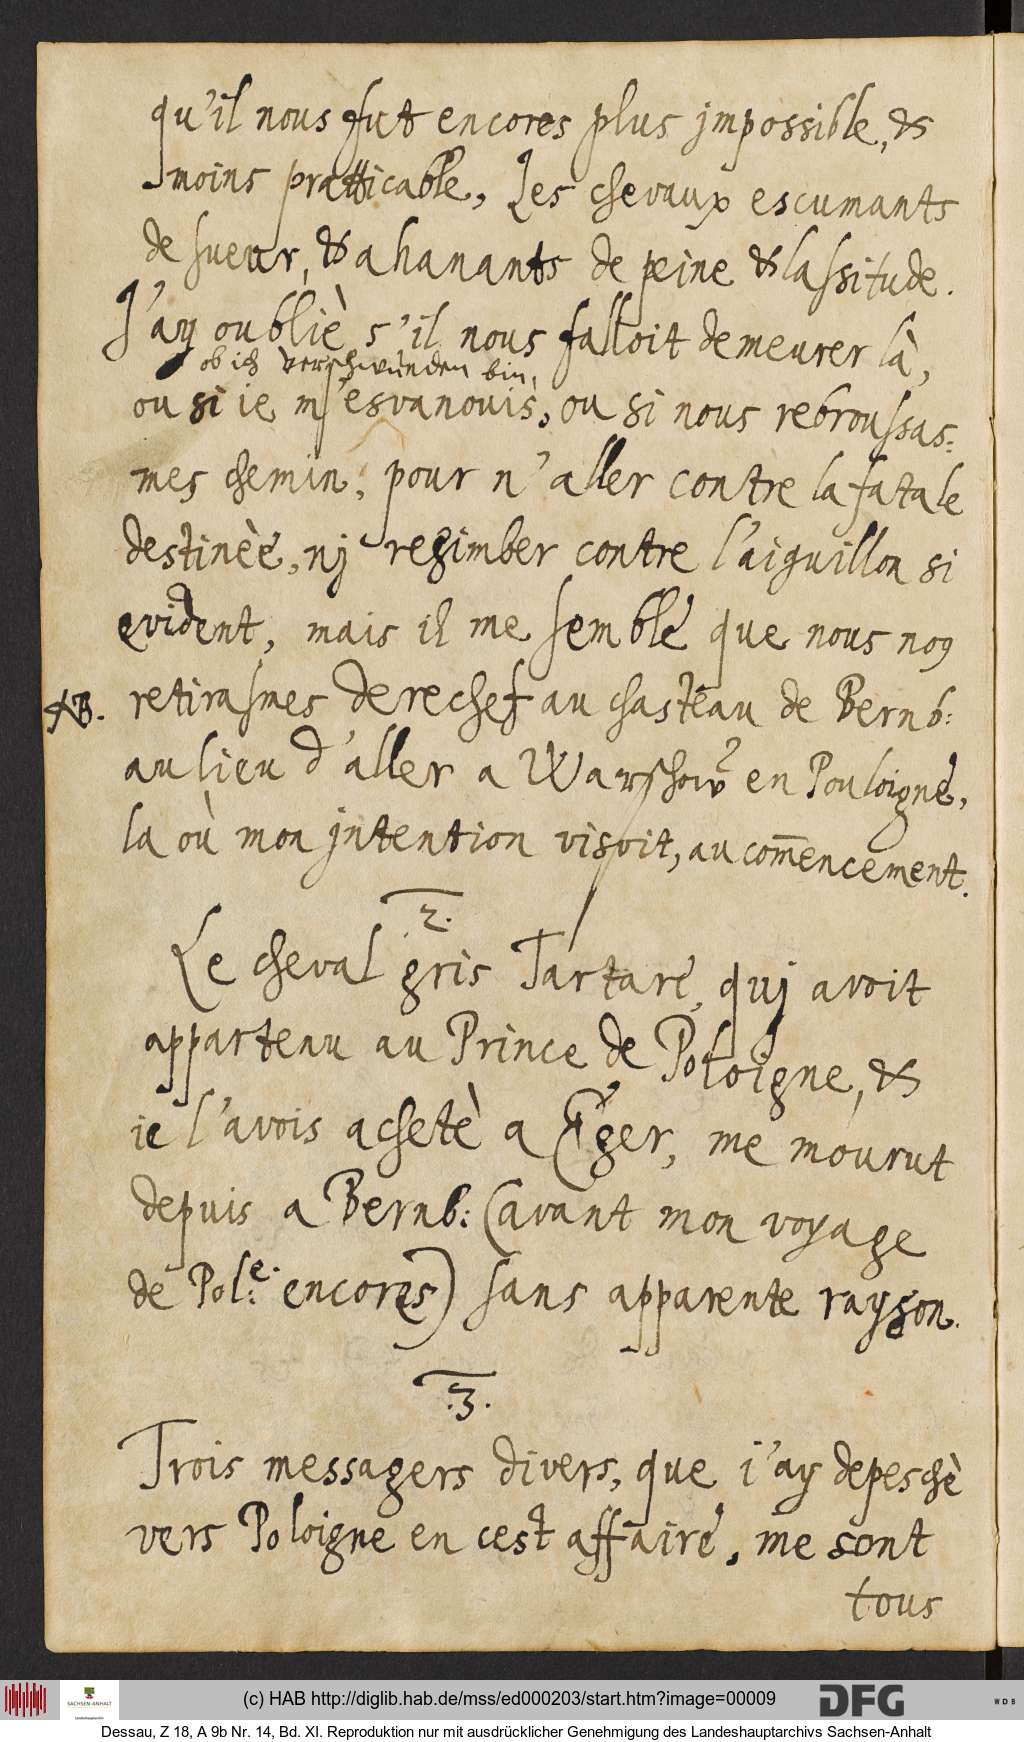 qu'il nous fut encores plus jmpossible, &
moins pratticable, Les chevaux escumants
de sueur, & ahanants de peine & lassitude.
J'ay oubliè s'il nous falloit demeurer là,
ob ich verschwunden bin,
ou si ie m'esvanouis, ou si nous rebroussas=
mes chemin, pour n'aller contre la fatale
destinèe, nj regimber contre l'aiguillon si
evident, mais il me semble que nous no9
NB. retirasmes derechef au chasteau de Bernb:
au lieu d'aller a Warschow en Pouloigne,
la où mon jntention visoit, au com̄encement.
2.
Le cheval gris Tartare, quj avoit
appartenu au Prince de Poloigne, &
ie l'avois achetè a Eger, me mourut
depuis a Bernb: (avant mon voyage
de Pol:e encores) sans apparente rayson.
.3.
Trois messagers divers, que i'ay depeschè
vers Poloigne en cest affaire, me sont
tous
SACHSEN-ANHALT
(c) HAB http://diglib.hab.de/mss/ed000203/start.htm?image=00009
DFG
WDB
Dessau, Z 18, A 9b Nr. 14, Bd. XI. Reproduktion nur mit ausdrücklicher Genehmigung des Landeshauptarchivs Sachsen-Anhalt